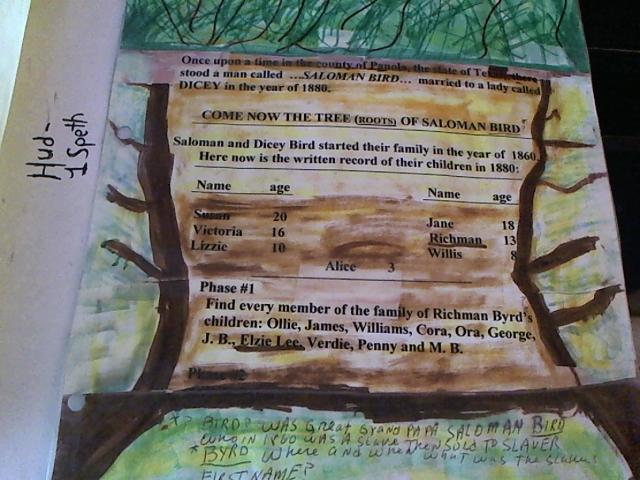 Once upon a time in the county of Panola, the state of Texas, there
stood a man called ...SALOMAN BIRD... married to a lady called
DICEY in the year of 1880.
COME NOW THE TREE (ROOTS) OF SALOMAN BIRD
Saloman and Dicey Bird started their family in the year of 1860.
Here now is the written record of their children in 1880:
Name age Name age
Susan 20 Jane 18
Victoria 16 Richman 13
Lizzie 10 Willis 8
Alice 3
Phase #1
Find every member of the family of Richman Byrd's
children: Ollie, James, Williams, Cora, Ora, George,
J. B., Elzie Lee, Verdie, Penny and M. B.
Phase #2
Hud-
1 Speth
*? BIRD? WAS Great Grand PAPA SALOMAN BIRD
who in 1860 was A Slave Then Sold TO SLAVER
* BYRD Where and when what was the Slavers
FIRST NAME?